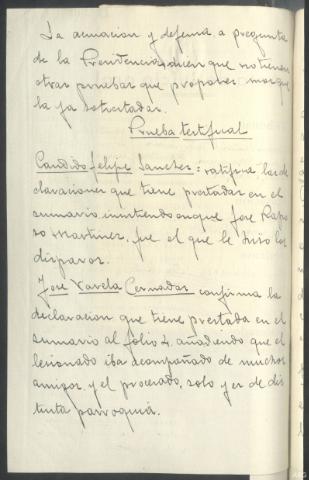 La acusación y defensa a pregunta
de la Presidencia, dicen que no tienen
otras pruebas que proponer mas que
la ya solicitadas.
Prueba testifical
Candido Felipe Sanchez: ratifica las de
claraciones que tiene prestadas en el
sumario insistiendo en que Jose Rapo
so Martinez, fue el que le hizo los
disparos.
Jose Varela Cernadas confirma la
declaracion que tiene prestada en el
sumario al folio 4, añadiendo que el
lesionado iba acompañado de muchos
amigos y el procesado, solo y es de dis
tinta parroquia.